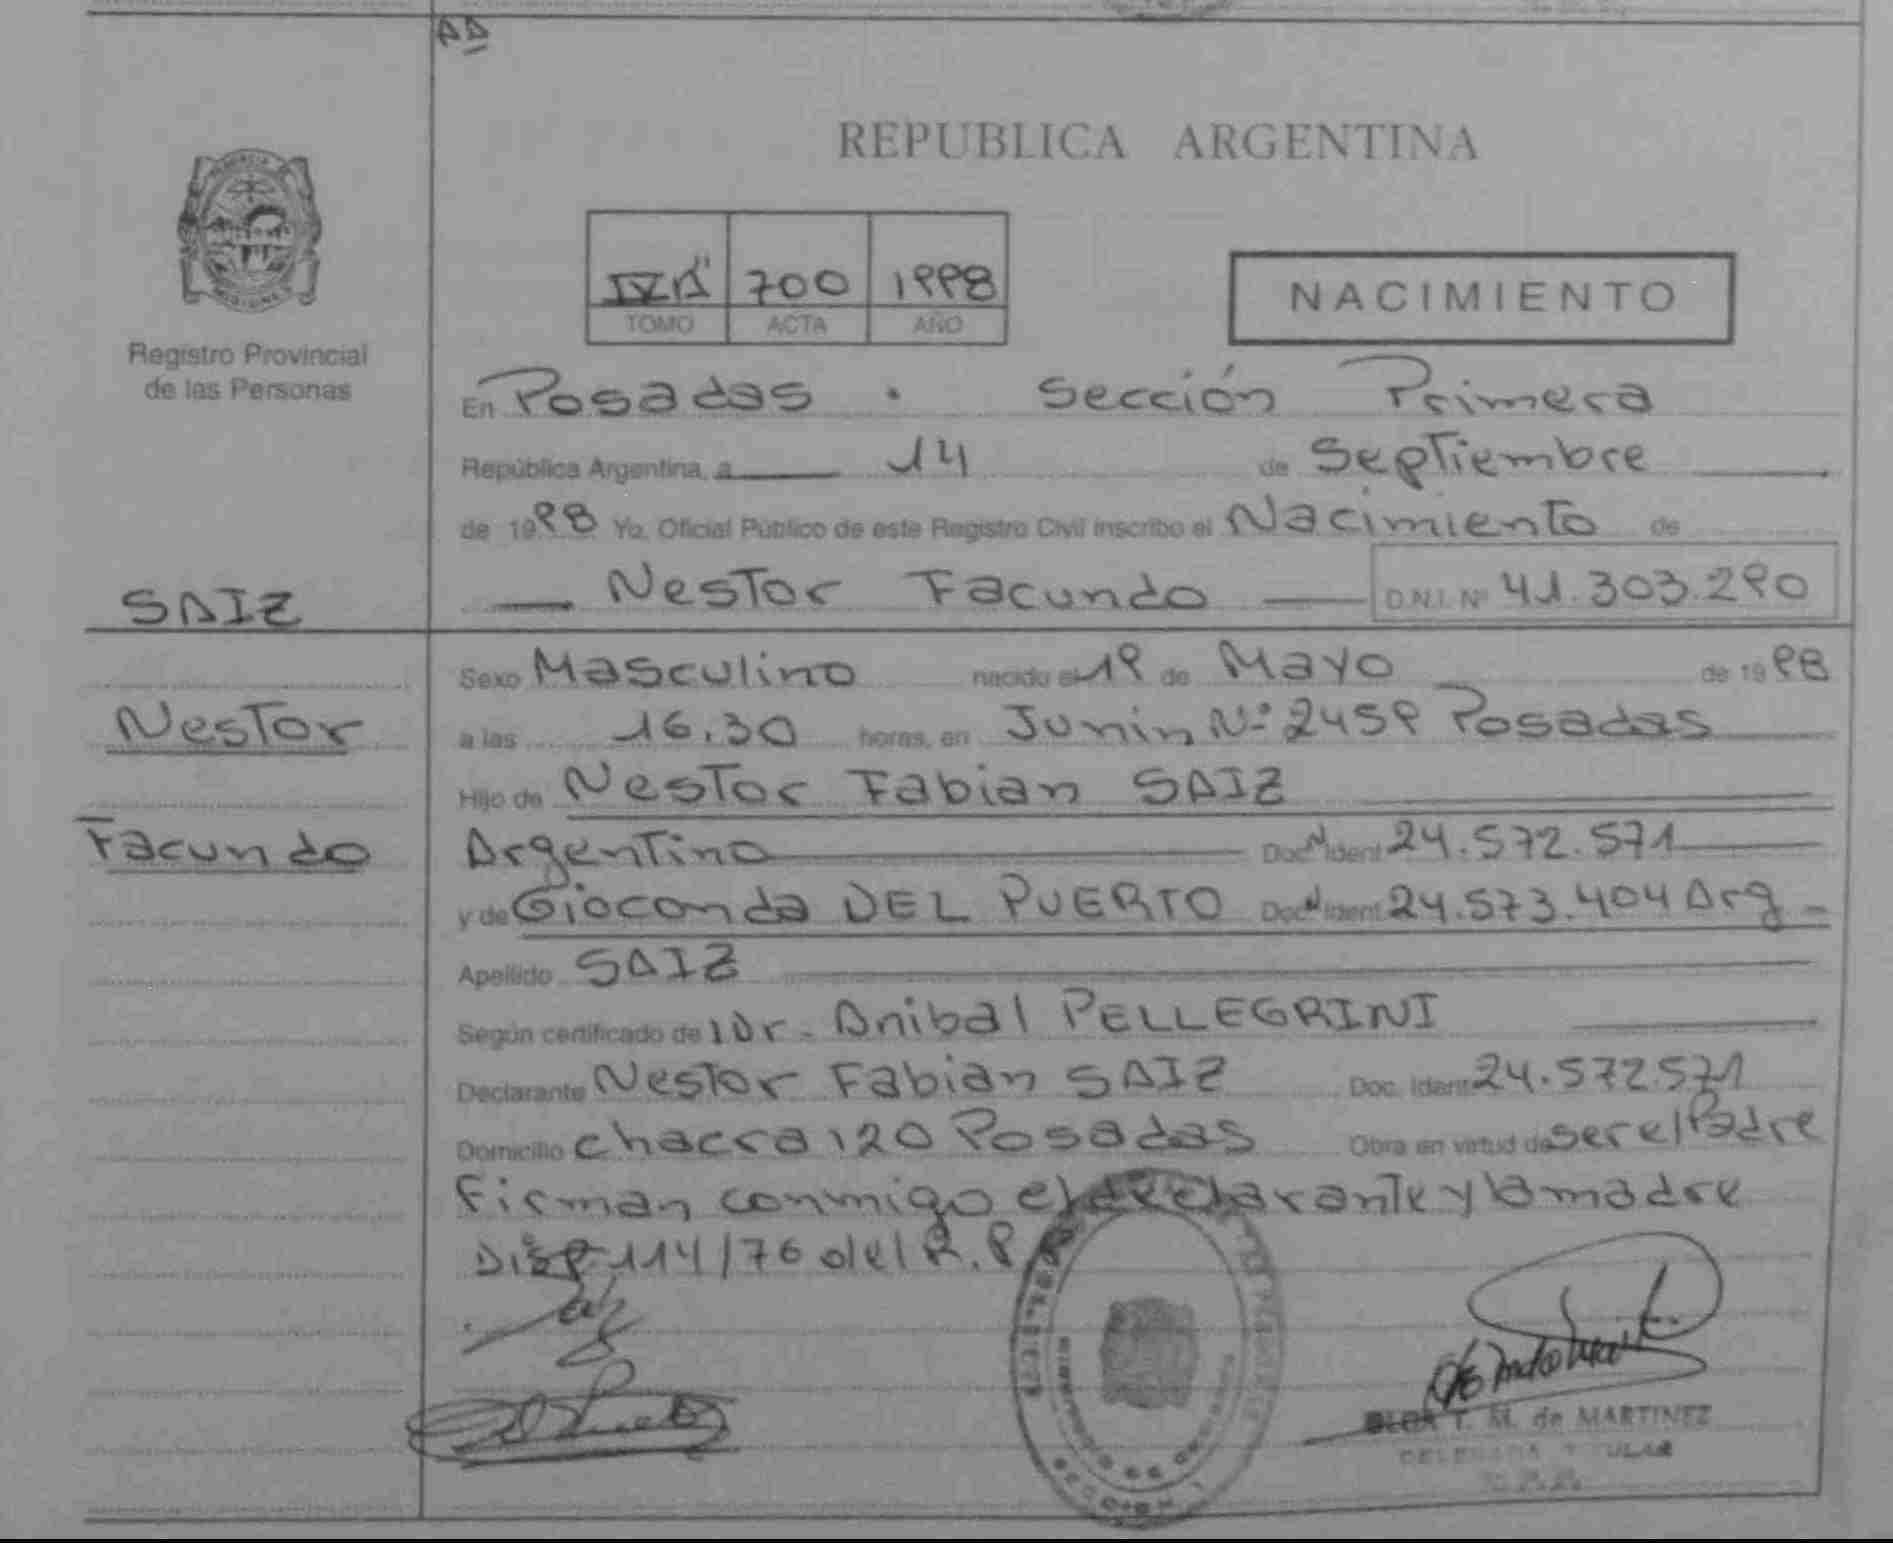 AA
REPUBLICA ARGENTINA
IV"A" 700 1998
TOMO ACTA AÑO
NACIMIENTO
Registro Provincial
de las Personas
En Posadas . Sección Primera
República Argentina, a 14 de Septiembre
de 1998 Yo, Oficial Público de este Registro Civil inscribo el Nacimiento de
Nestor Facundo D.N.I. Nº 41.303.290
SAIZ
Nestor
Facundo
Sexo Masculino nacido el 19 de Mayo de 1998
a las 16.30 horas, en Junin Nº 2459 Posadas
Hijo de Nestor Fabian SAIZ
Argentino Doc. Ident. 24.572.571
y de Gioconda DEL PUERTO Doc. Ident. 24.573.404 Arg -
Apellido SAIZ
Según certificado de Dr. Anibal PELLEGRINI
Declarante Nestor Fabian SAIZ Doc. Ident. 24.572.571
Domicilio chacra 120 Posadas Obra en virtud de ser el Padre
Firman conmigo el declarante y la madre
Disp. 114/76 del R.P.
T. M. de MARTINEZ
DELEGADA TITULAR